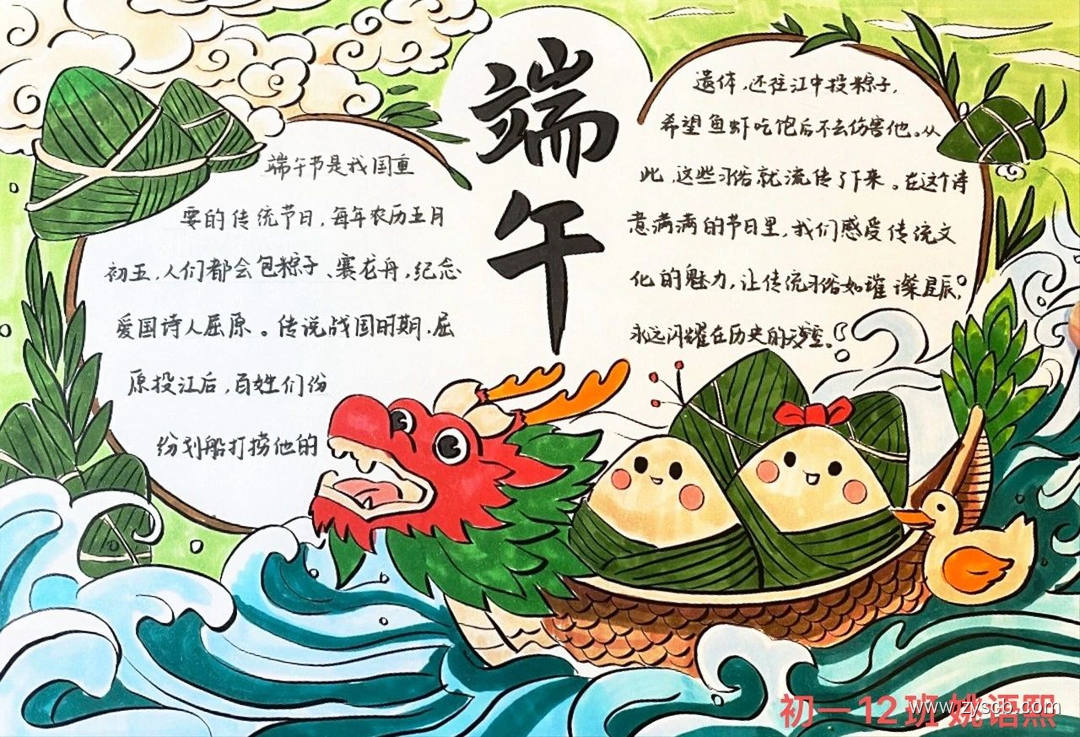 端午
端午节是我国重
要的传统节日，每年农历五月
初五，人们都会包粽子、赛龙舟，纪念
爱国诗人屈原。传说战国时期，屈
原投江后，百姓们份
份划船打捞他的
遗体，还往江中投粽子，
希望鱼虾吃饱后不去伤害他。从
此，这些习俗就流传了下来。在这个诗
意满满的节日里，我们感受传统文
化的魅力，让传统习俗如璀璨星辰，
永远闪耀在历史的天空。
初一12班 姚语熙
www.zyscb.com